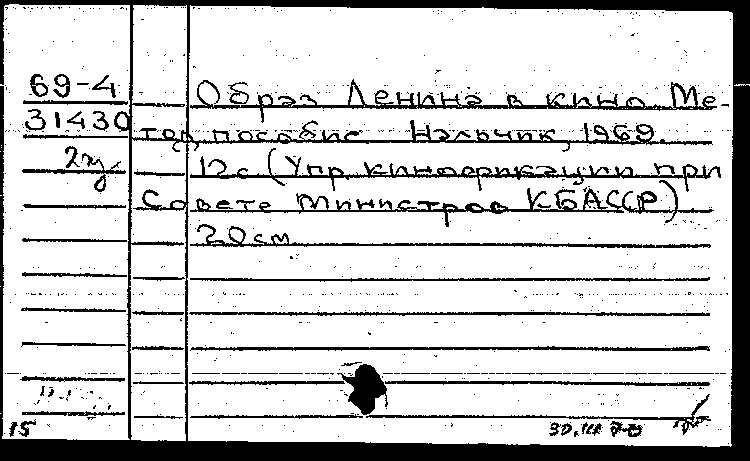 69-4
31430
Образ Ленина в кино Ме-
тод. пособие. Нальчик, 1969.
12с (Упр. кинофикации при
Совете Министров КБАССР)
20см.
15
30.III 70